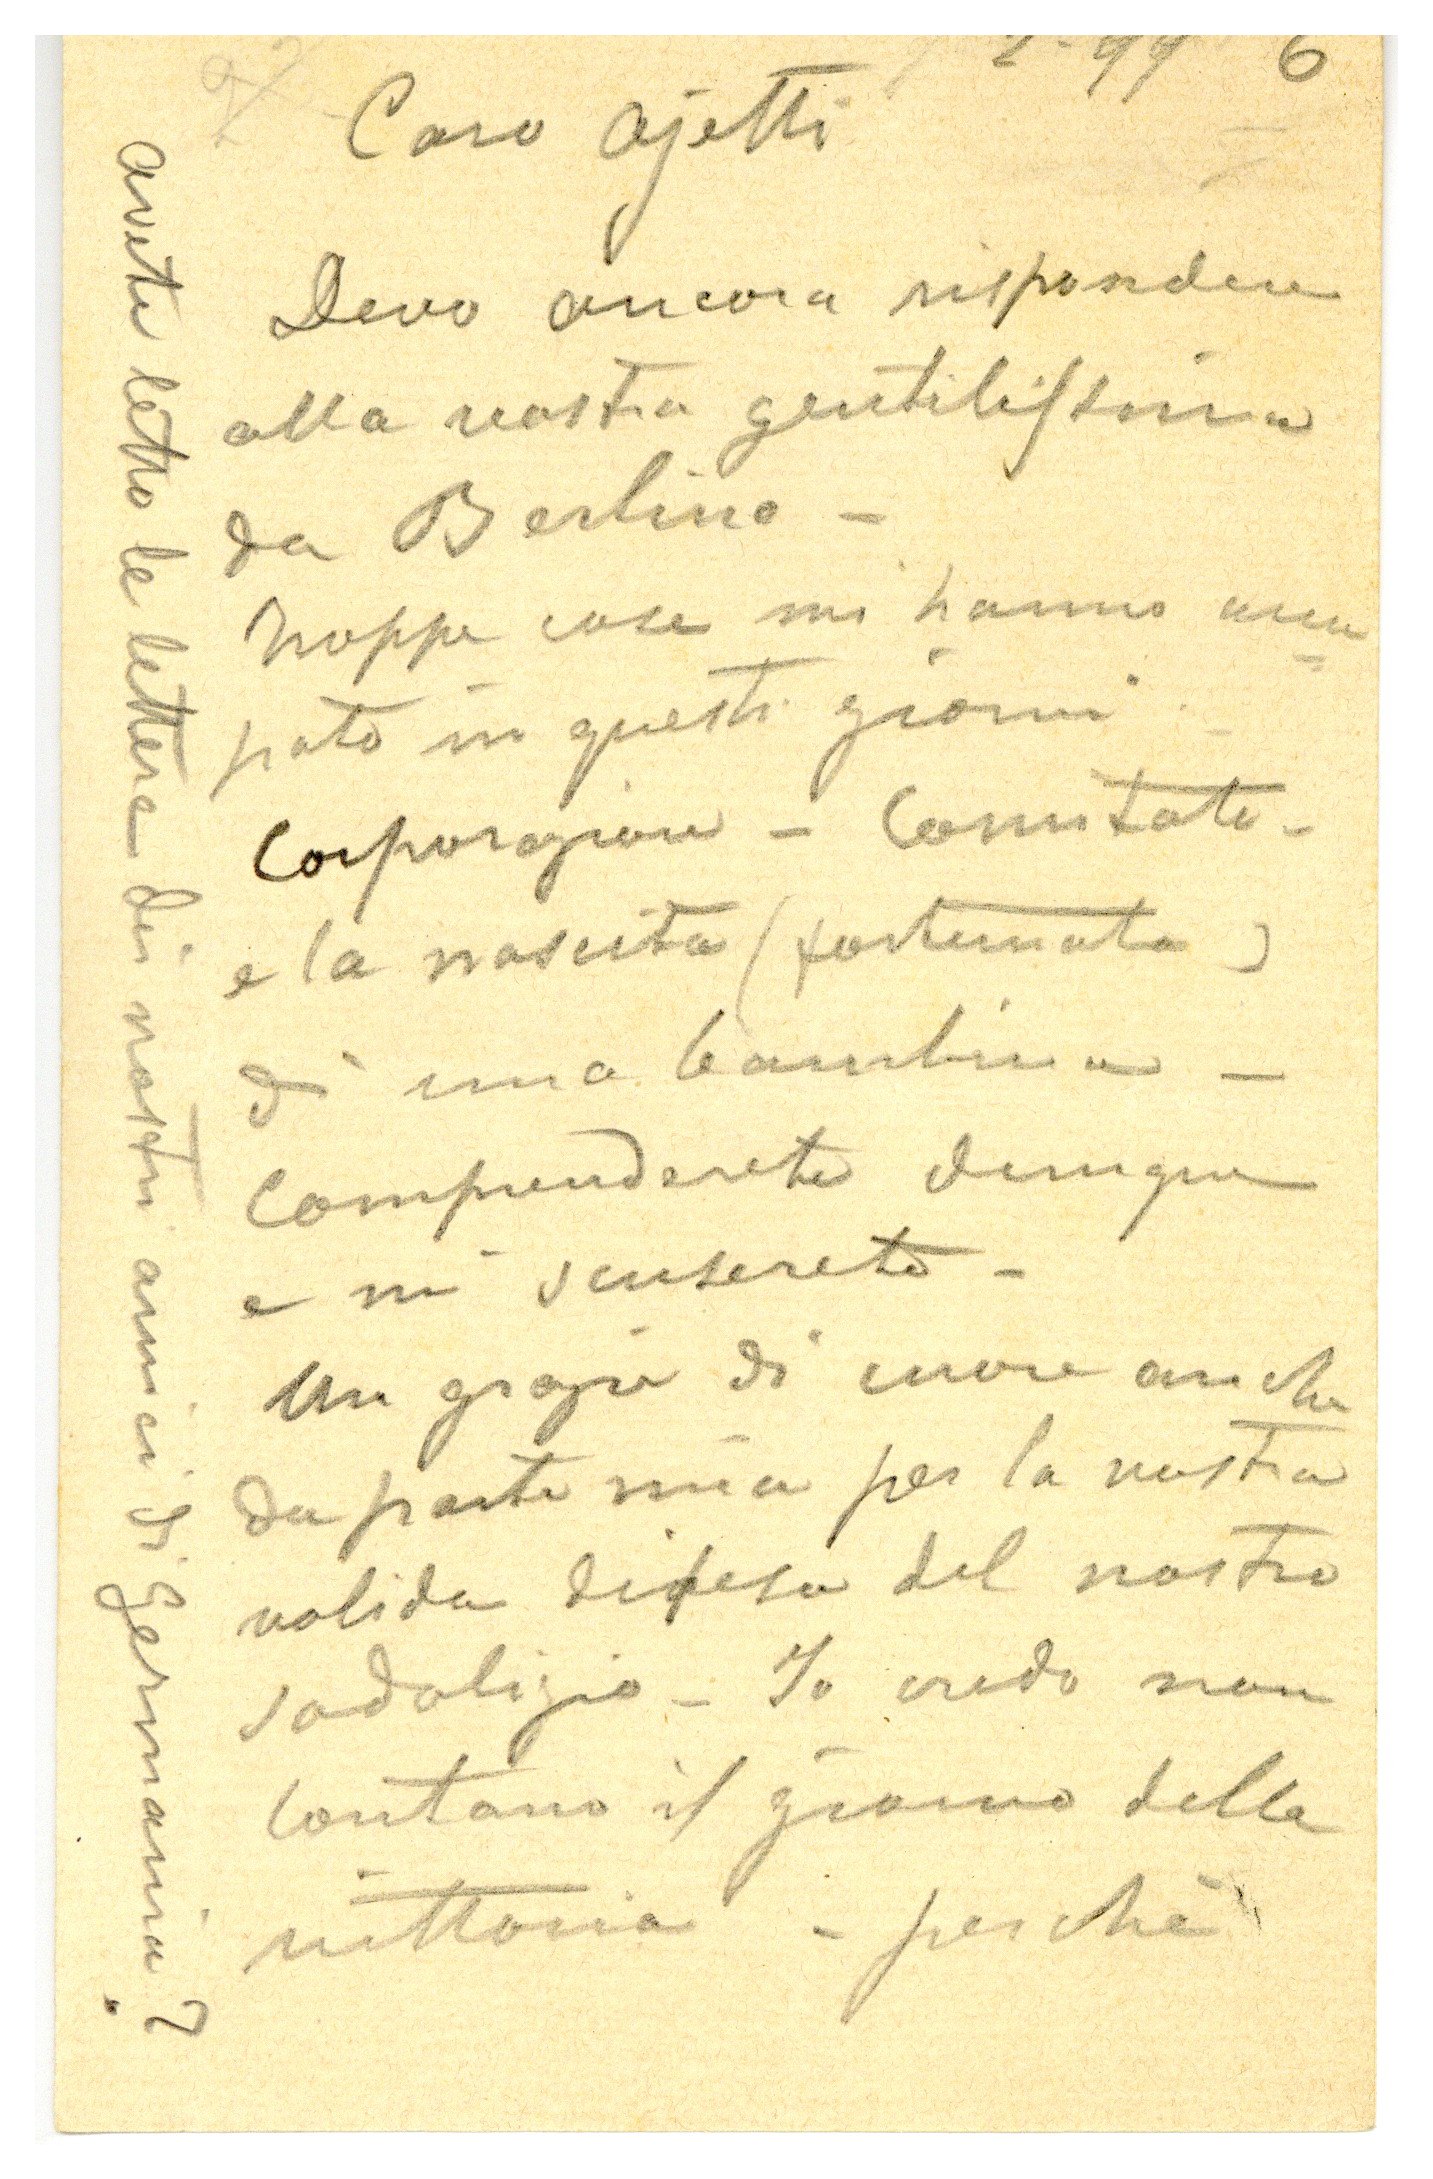 2-99 6
Caro Ojetti
Devo ancora rispondere
alla vostra gentilissima
da Berlino -
Troppe cose mi hanno occu
=
pato in questi giorni -
Corporazione - Comitato -
e la nascita (fortunata)
di una bambina -
Comprenderete dunque
e mi scuserete -
Un grazie di cuore anche
da parte mia per la vostra
valida difesa del nostro
sodalizio - Io credo non
lontano il giorno della
vittoria - perchè
avete letto le lettere dei nostri amici di Germania?